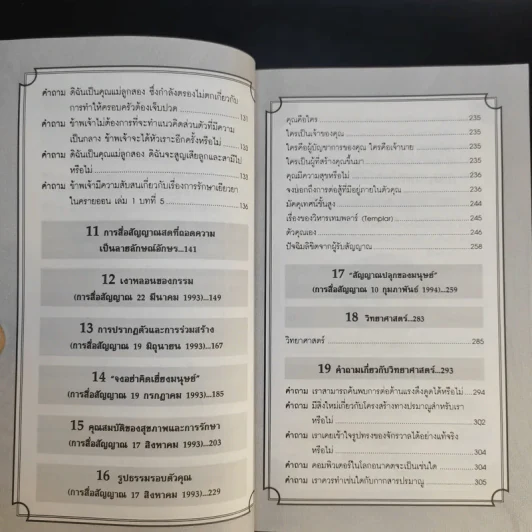 คำถาม ดิฉันเป็นคุณแม่ลูกสอง ซึ่งกำลังตรองไม่ตกเกี่ยวกับ
การทำให้ครอบครัวต้องเจ็บปวด
131
คำถาม ข้าพเจ้าไม่ต้องการที่จะทำแนวคิดส่วนตัวที่มีความ
เป็นกลาง ข้าพเจ้าจะได้หัวเราะอีกครั้งหรือไม่
133
คำถาม ดิฉันเป็นคุณแม่ลูกสอง ดิฉันจะสูญเสียลูกและสามีไป
หรือไม่ 135
คำถาม ข้าพเจ้ามีความสับสนเกี่ยวกับเรื่องการรักษาเยียวยา
ในครายออน เล่ม 1 บทที่ 5 136
11 การสื่อสัญญาณสดที่ถอดความ
เป็นลายลักษณ์อักษร...141
12 เงาหลอนของกรรม
(การสื่อสัญญาณ 22 มีนาคม 1993)...149
13 การปรากฏตัวและการร่วมสร้าง
(การสื่อสัญญาณ 19 มิถุนายน 1993)...167
14 "จงอย่าคิดเยี่ยงมนุษย์"
(การสื่อสัญญาณ 19 กรกฎาคม 1993)...185
15 คุณสมบัติของสุขภาพและการรักษา
(การสื่อสัญญาณ 17 สิงหาคม 1993)...203
16 รูปธรรมรอบตัวคุณ
(การสื่อสัญญาณ 17 สิงหาคม 1993)...229
คุณคือใคร 235
ใครเป็นเจ้าของคุณ 235
ใครคือผู้บัญชาการของคุณ ใครคือเจ้านาย 235
ใครเป็นผู้ที่สร้างคุณขึ้นมา 235
คุณมีความสุขหรือไม่ 236
จงบอกถึงการต่อสู้ที่มีอยู่ภายในตัวคุณ 236
มัคคุเทศก์ชั้นสูง 244
เรื่องของวิหารเทมพลาร์ (Templar) 245
ตัวคุณเอง 246
ปัจฉิมลิขิตจากผู้รับสัญญาณ 258
17 "สัญญาณปลุกของมนุษย์"
(การสื่อสัญญาณ 10 กุมภาพันธ์ 1994)...259
18 วิทยาศาสตร์...283
วิทยาศาสตร์ 285
19 คำถามเกี่ยวกับวิทยาศาสตร์...293
คำถาม เราสามารถค้นพบการต่อต้านแรงดึงดูดได้หรือไม่ 294
คำถาม มีสิ่งใหม่เกี่ยวกับโครงสร้างทางปรมาณูสำหรับเรา
หรือไม่ 302
คำถาม เราเคยเข้าใจรูปทรงของจักรวาลได้อย่างแท้จริง
หรือไม่ 304
คำถาม คอมพิวเตอร์ในโลกอนาคตจะเป็นเช่นใด 304
คำถาม เราควรทำเช่นใดกับกากสารปรมาณู 305